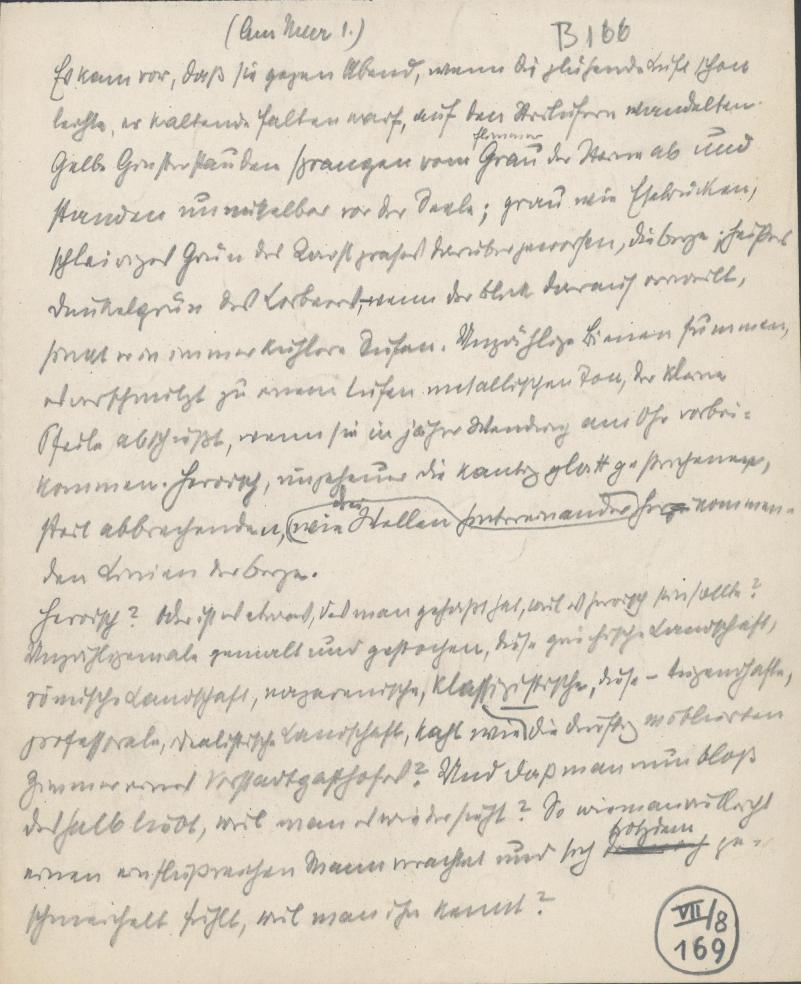 (Am Meer 1.)
B 166
Es kam vor, daß sie gegen Abend, wenn die glühende Luft schon
leichte, erkaltende Falten warf, auf den Steilufern wandelten.
flimmer
Gelbe Ginsterstauden sprangen vom Grau der Steine ab und
standen unmittelbar vor der Seele; grau wie Eselrücken,
Grün des Karstgrases darübergeworfen, die Berge; heißes
Dunkelgrün des Lorbeers; wenn der Blick darauf verweilt,
sinkt er in immer kühlere Tiefen. Unzählige Bienen summen,
es verschmilzt zu einem tiefen metallischen Ton, der kleine
Pfeile abschießt, wenn sie in jäher Wendung am Ohr vorbei-
kommen. Heroisch, ungeheuer die kantig glatt gestrichenen,
die
steil abbrechenden, wie Wellen hintereinander her kommen-
den Linien der Berge.
Heroisch? Oder ist es etwas, das man gehaßt hat, weil es heroisch sein sollte?
Unzähligemale gemalt und gestochen, diese griechische Landschaft,
römische Landschaft, nazarenische, klassizistische, diese – tugendhafte,
professorale, idealistische Landschaft, kahl wie die dürftig möblierten
Zimmer eines Vorstadtgasthofes? Und daß man nun bloß
deshalb liebt, weil man es wiedersieht? So wie man vielleicht
trotzdem
einen einflußreichen Mann verachtet und sich ge-
schmeichelt fühlt, weil man ihn kennt?
VII/8
169